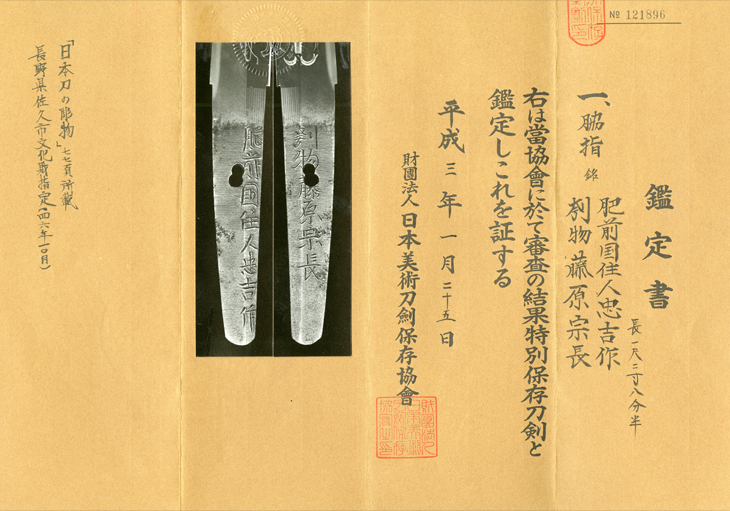 № 121896
鑑定書
一、脇指 銘 肥前国住人忠吉作
彫物藤原宗長
長一尺二寸八分半
右は當協會に於て審査の結果特別保存刀剣と
鑑定しこれを証する
平成三年一月二十五日
財團法人日本美術刀剣保存協會
肥前国住人忠吉作
彫物藤原宗長
「日本刀の彫物」七七頁所載
長野県佐久市文化財指定(四六年一〇月)